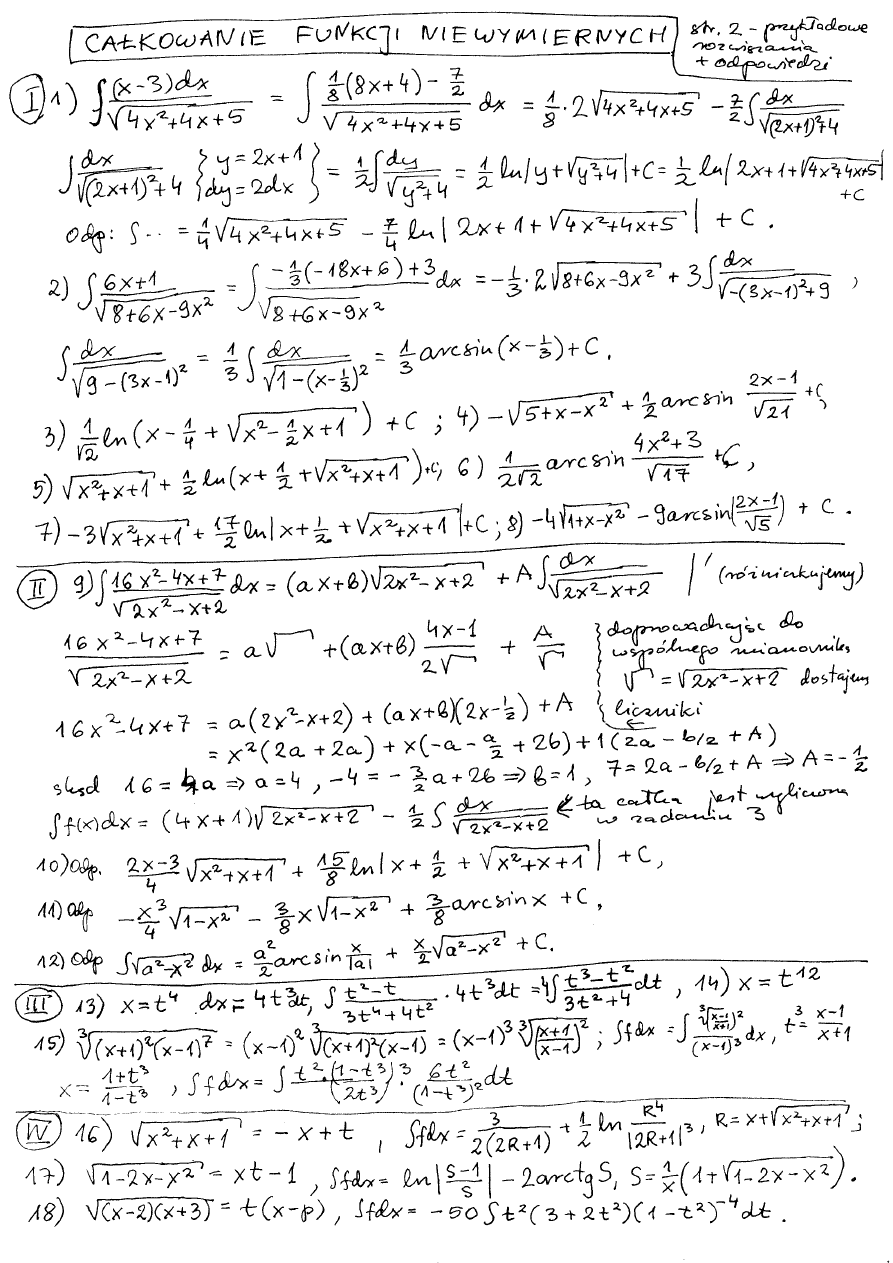 CAŁKOWANIE FUNKCJI NIEWYMIERNYCH
str. 2 - przykładowe
rozwiązania
+ odpowiedzi
I 1) ∫ (x-3)dx / √(4x²+4x+5) = ∫ (⅛(8x+4) - 7/2) / √(4x²+4x+5) dx = ⅛·2√(4x²+4x+5) - 7/2 ∫ dx / √((2x+1)²+4)
∫ dx / √((2x+1)²+4) {y=2x+1 dy=2dx} = ½∫ dy / √(y²+4) = ½ ln|y+√(y²+4)|+C = ½ ln|2x+1+√(4x²+4x+5)| +C
Odp: ∫·· = ¼√(4x²+4x+5) - 7/4 ln|2x+1+√(4x²+4x+5)| + C.
2) ∫ (6x+1) / √(8+6x-9x²) = ∫ (-⅓(-18x+6)+3) / √(8+6x-9x²) dx = -⅓·2√(8+6x-9x²) + 3∫ dx / √(-(3x-1)²+9) ,
∫ dx / √(9-(3x-1)²) = ⅓ ∫ dx / √(1-(x-⅓)²) = ⅓ arcsin(x-⅓)+C.
3) 1/√2 ln(x-¼+√(x²-½x+1)) + C ; 4) -√(5+x-x²) + ½ arcsin (2x-1)/√21 +C,
5) √(x²+x+1) + ½ ln(x+½+√(x²+x+1))+C, 6) 1/(2√2) arcsin (4x²+3)/√17 +C,
7) -3√(x²+x+1) + 17/2 ln|x+½+√(x²+x+1)|+C ; 8) -4√(1+x-x²) - 9arcsin((2x-1)/√5) + C.
II 9) ∫ (16x²-4x+7) / √(2x²-x+2) dx = (ax+b)√(2x²-x+2) + A∫ dx / √(2x²-x+2) |′ (różniczkujemy)
(16x²-4x+7) / √(2x²-x+2) = a√ + (ax+b) (4x-1)/(2√) + A/√
doprowadzając do
wspólnego mianownika
√ = √(2x²-x+2) dostajem
liczniki
16x²-4x+7 = a(2x²-x+2) + (ax+b)(2x-½) + A
= x²(2a+2a) + x(-a-a/2+2b) + 1(2a-b/2+A)
skąd 16=4a ⇒ a=4 , -4=-3/2a+2b ⇒ b=1, 7=2a-b/2+A ⇒ A=-½
∫f(x)dx = (4x+1)√(2x²-x+2) - ½ ∫ dx / √(2x²-x+2) ← ta całka jest wyliczona
w zadaniu 3
10) Odp. (2x-3)/4 √(x²+x+1) + 15/8 ln|x+½+√(x²+x+1)| + C,
11) Odp -x³/4 √(1-x²) - ⅜x√(1-x²) + ⅜ arcsinx + C,
12) Odp ∫√(a²-x²) dx = a²/2 arcsin x/|a| + x/2 √(a²-x²) + C.
III 13) x=t⁴ dx=4t³dt, ∫ (t²-t)/(3t⁴+4t²) · 4t³dt = 4∫ (t³-t²)/(3t²+4) dt , 14) x=t¹²
15) ³√((x+1)²(x-1)⁷) = (x-1)² ³√((x+1)²(x-1)) = (x-1)³ ³√((x+1)/(x-1))² ; ∫fdx = ∫ ³√((x-1)/(x+1))² / (x-1)³ dx, t³=(x-1)/(x+1)
x = (1+t³)/(1-t³) , ∫fdx = ∫ t²·((1-t³)/(2t³))³ · 6t²/(1-t³)² dt
IV 16) √(x²+x+1) = -x+t , ∫fdx = 3/(2(2R+1)) + ½ ln R⁴/|2R+1|³ , R=x+√(x²+x+1) ;
17) √(1-2x-x²) = xt-1 , ∫fdx = ln|(S-1)/S| - 2arctgS, S=1/x(1+√(1-2x-x²)).
18) √((x-2)(x+3)) = t(x-p) , ∫fdx = -50∫t²(3+2t²)(1-t²)⁻⁴dt.